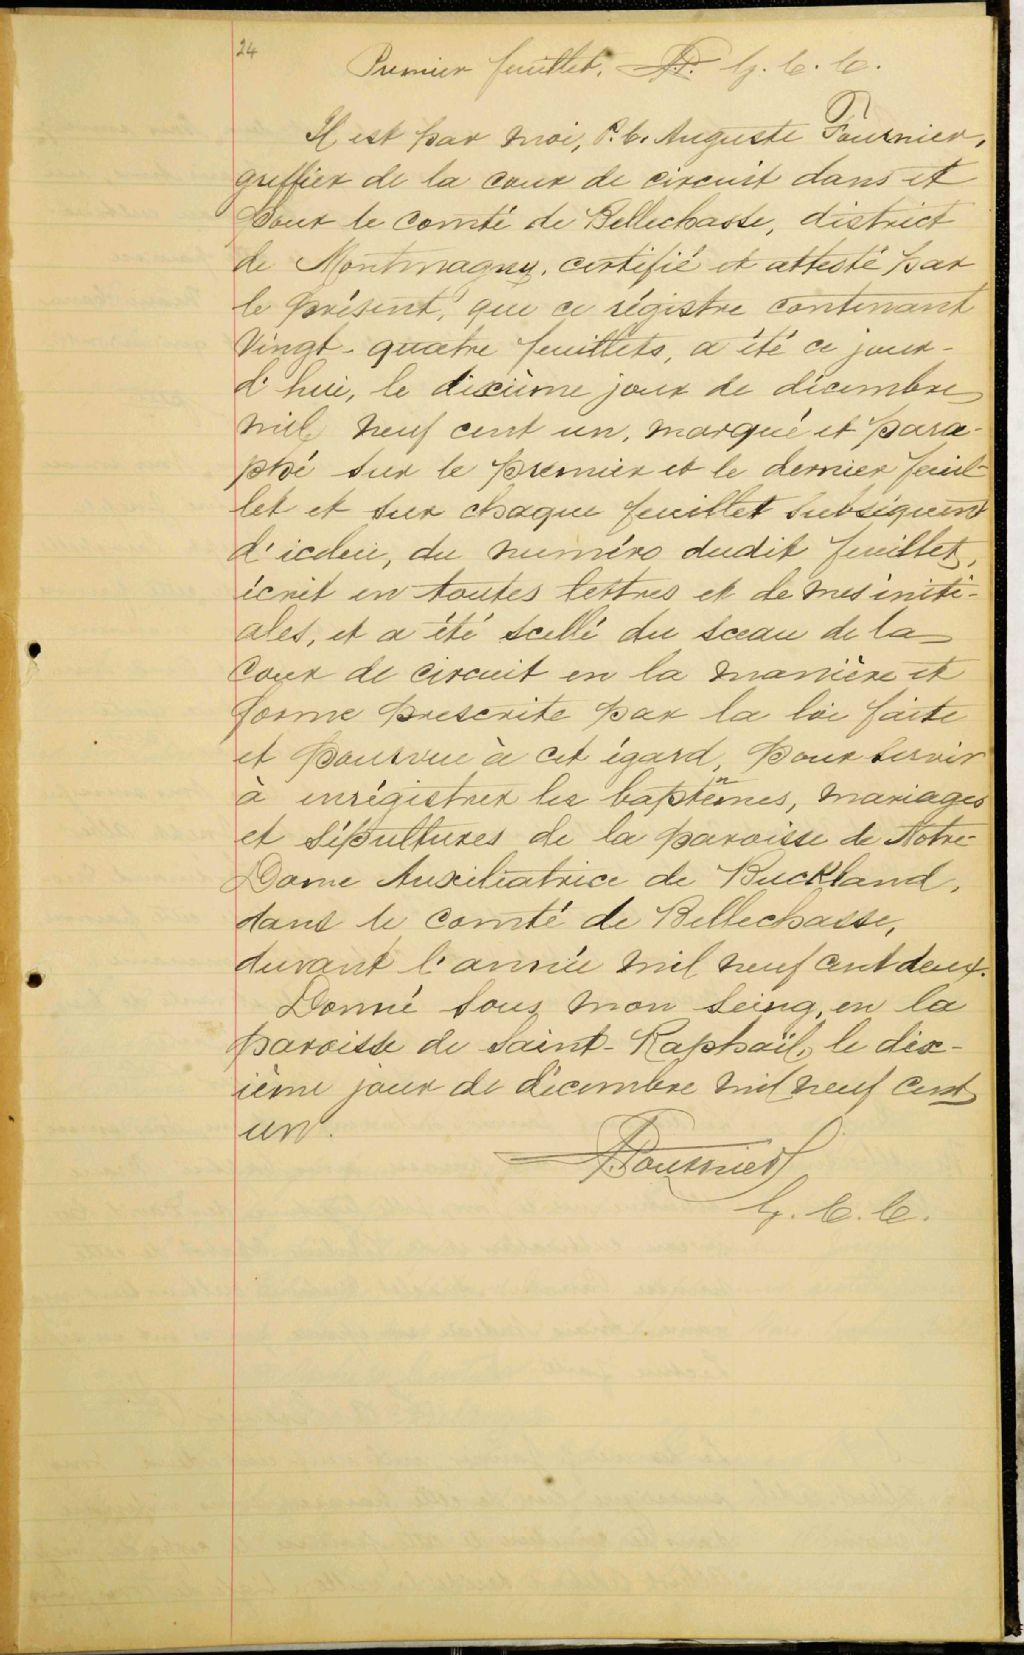 24
Premier feuillet. A.F. G. C. C.
Il est par moi, P. C. Auguste Fournier,
greffier de la cour de circuit dans et
pour le comté de Bellechasse, district
de Montmagny, certifié et attesté par
le présent, que ce régistre contenant
vingt-quatre feuillets, a été ce jour-
d'hui, le dixième jour de décembre
mil neuf cent un, marqué et para-
phé sur le premier et le dernier feuil-
let et sur chaque feuillet subséquent
d'icelui, du numéro dudit feuillet,
écrit en toutes lettres et de mes initi-
ales, et a été scellé du sceau de la
Cour de circuit en la manière et
forme prescrite par la loi faite
et pourvue à cet égard, pour servir
à enrégistrer les baptêmes, mariages
et sépultures de la paroisse de Notre-
Dame Auxiliatrice de Buckland,
dans le comté de Bellechasse,
durant l'année mil neuf cent deux.
Donné sous mon seing, en la
paroisse de Saint-Raphaël, le dix-
ième jour de décembre mil neuf cent
un.
A Fournier
G. C. C.